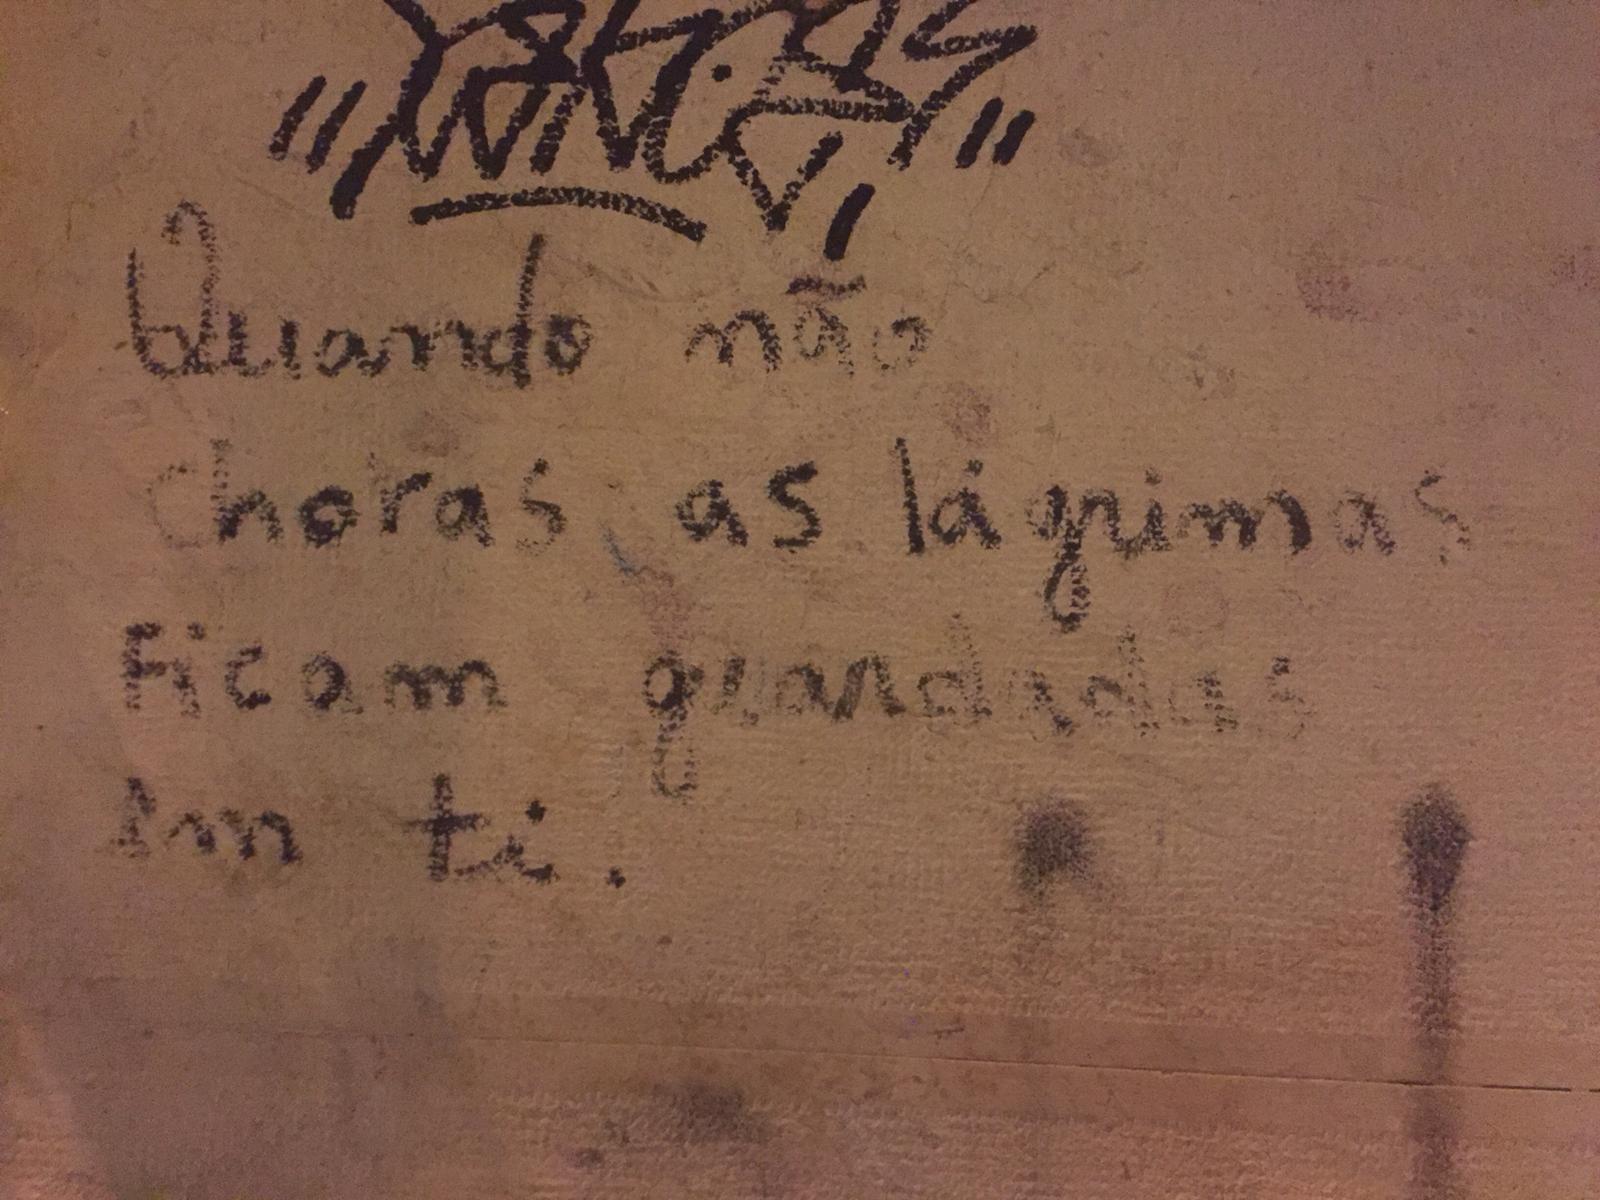 Quando não
choras as lágrimas
Ficam guardadas
em ti.